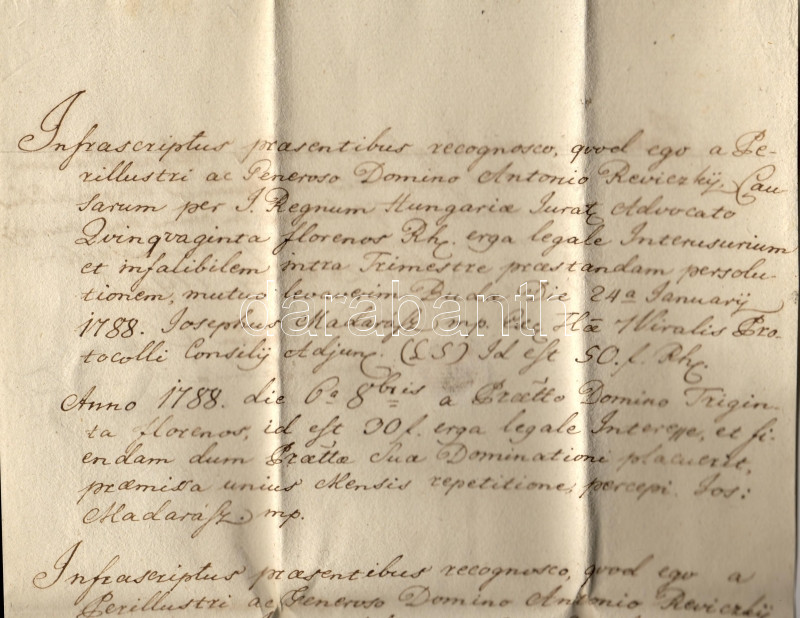 Infrascriptus præsentibus recognosco, qvod ego a Pe-
rillustri ac Generoso Domino Antonio Reviczkÿ. Cau
sarum per I. Regnum Hungariæ Jurat Advocato
Qvinqvaginta florenos Rh. erga legale Interusurium
et infalibilem intra Trimestre præstandam persolu-
tionem, mutuo levaverim Budæ Die 24a Januarÿ
1788. Josephus Madarász mp. Hæ Viralis Pro-
tocolli Consilÿ Adjun. (LS) Id est 50. f. Rh.
Anno 1788. die 6a 8bris a Prætto Domino Trigin-
ta florenos, id est 30 f. erga legale Interesse, et fi-
endam dum Prættæ Suæ Dominationi placuerit,
præmissa unius Mensis repetitione, percepi. Jos:
Madarász. mp.
Infrascriptus præsentibus recognosco, qvod ego a
Perillustri ac Generoso Domino Antonio Reviczkÿ
carabanti